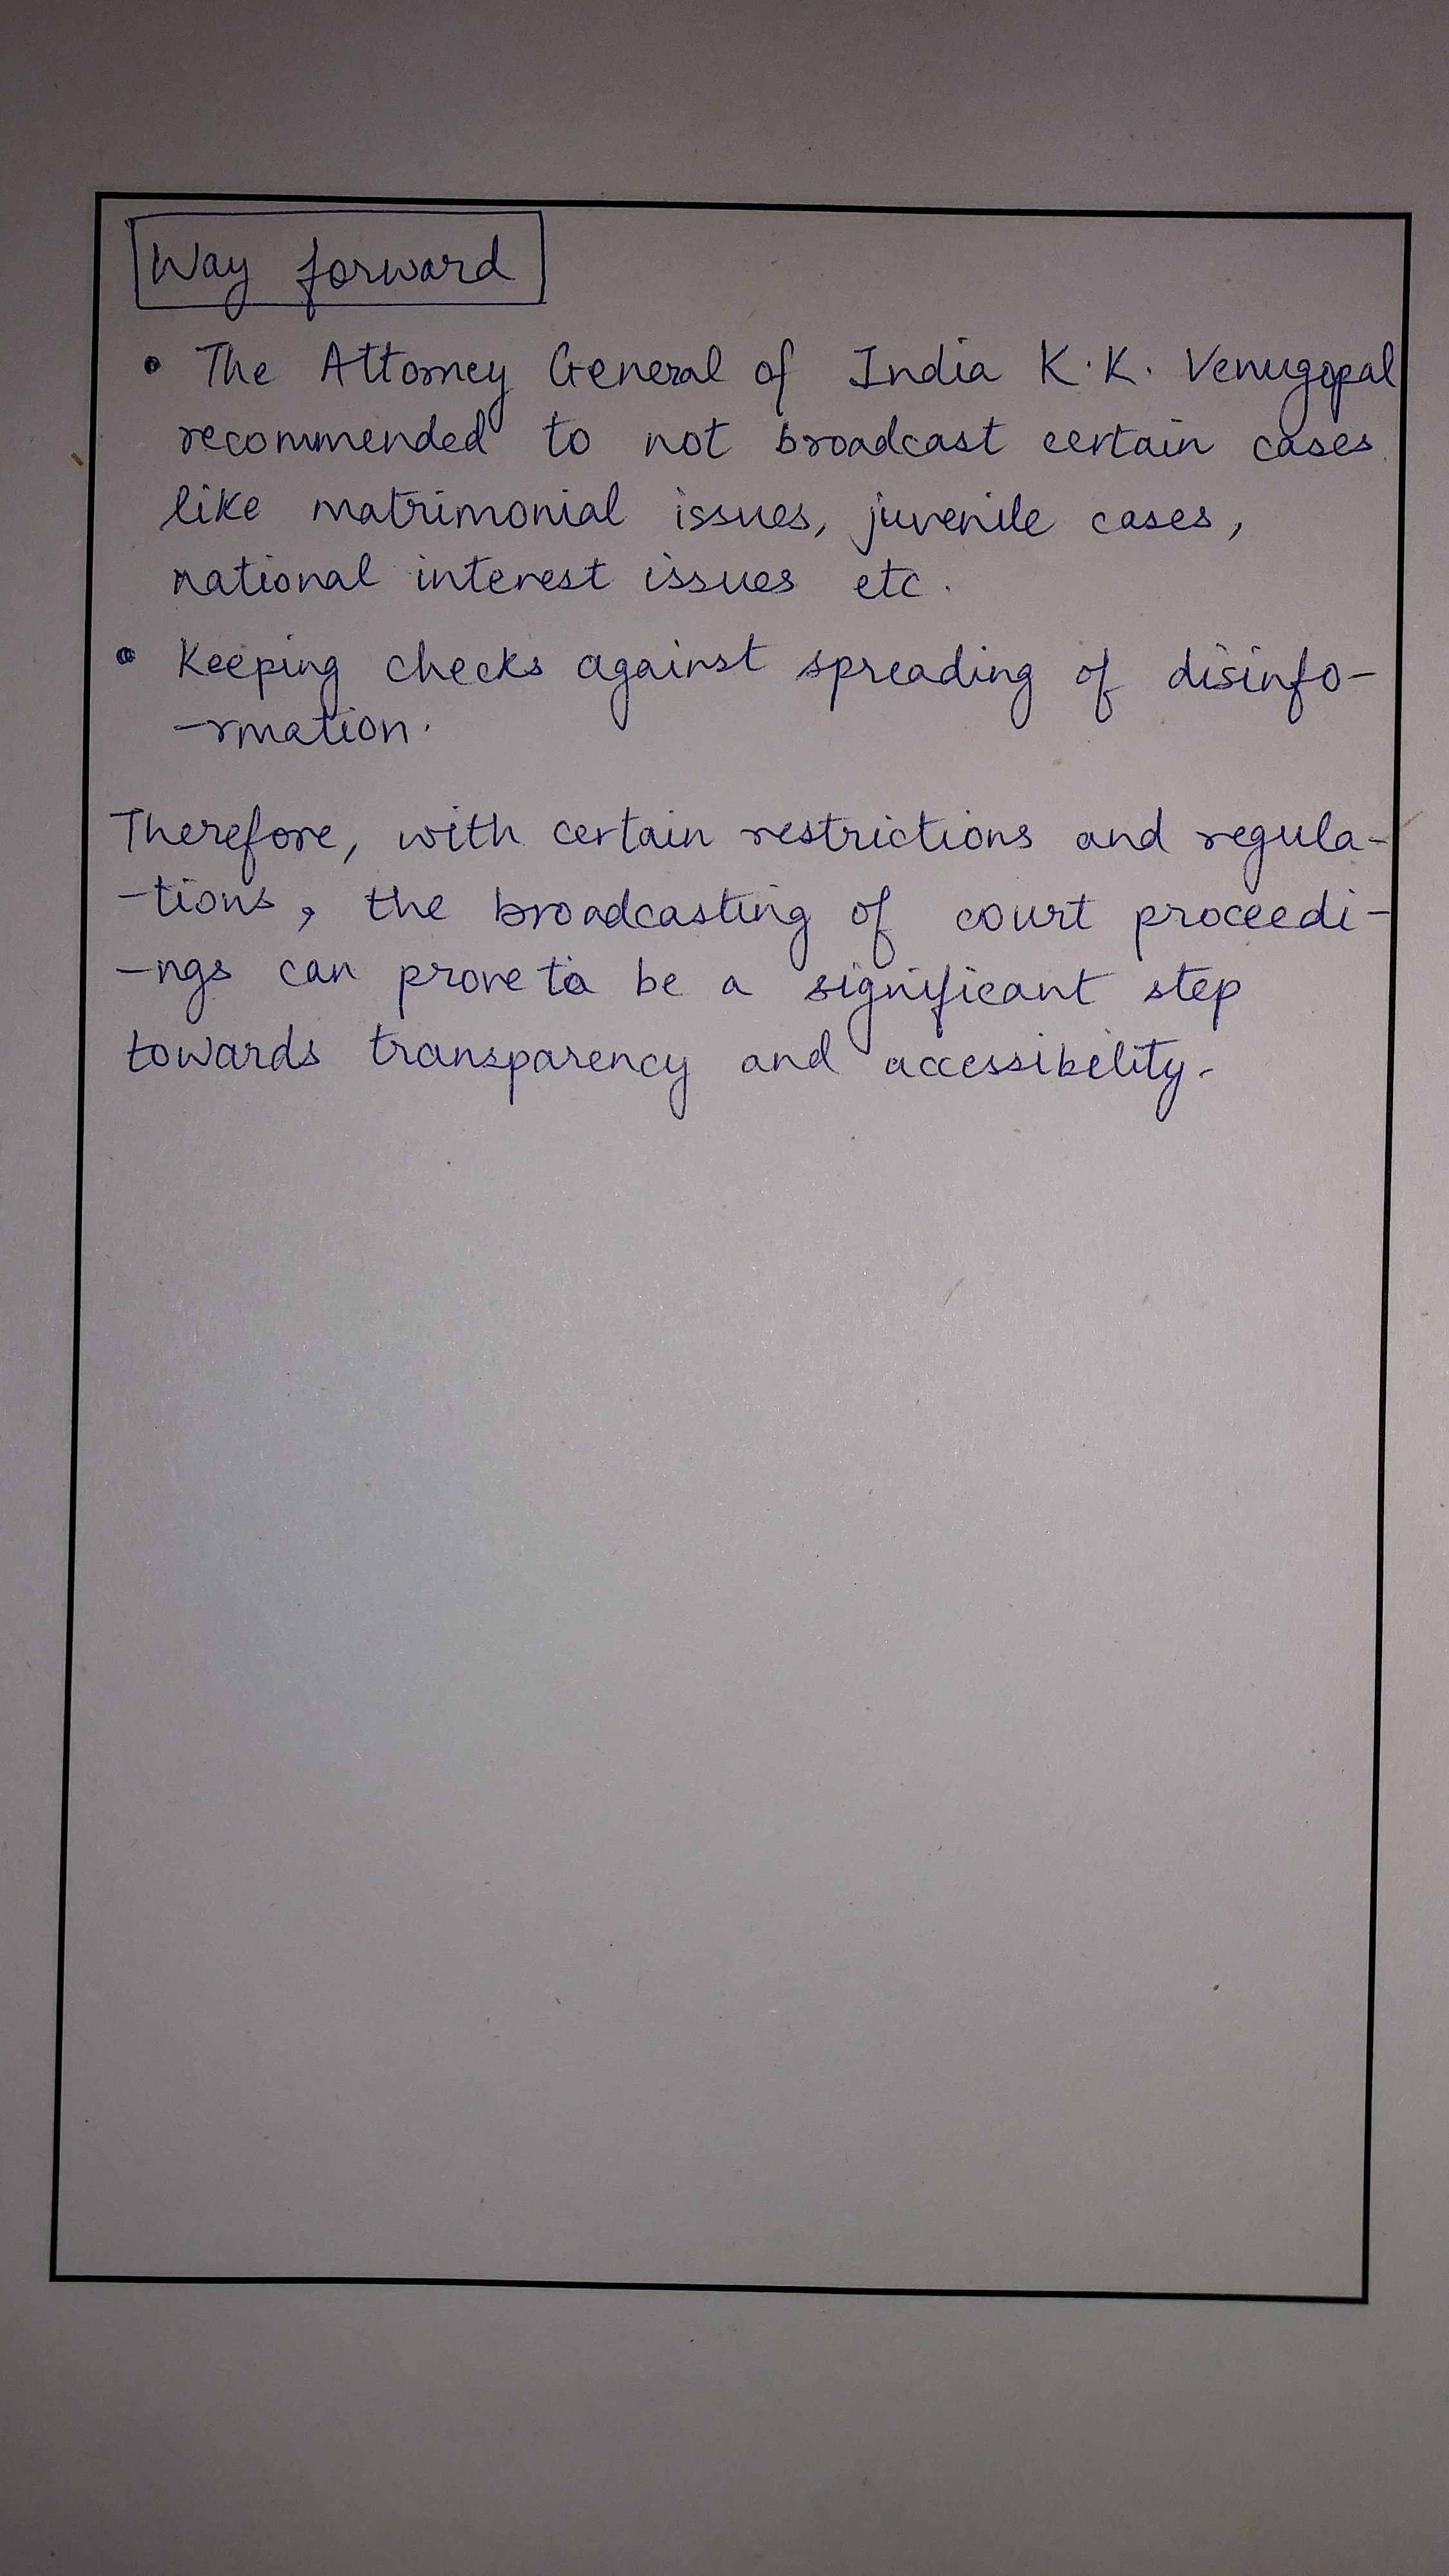 Way forward
• The Attorney General of India K.K. Venugopal
recommended to not broadcast certain cases
like matrimonial issues, juvenile cases,
national interest issues etc.
• Keeping checks against spreading of disinfo-
-rmation.
Therefore, with certain restrictions and regula-
-tions, the broadcasting of court proceedi-
-ngs can prove to be a significant step
towards transparency and accessibility.